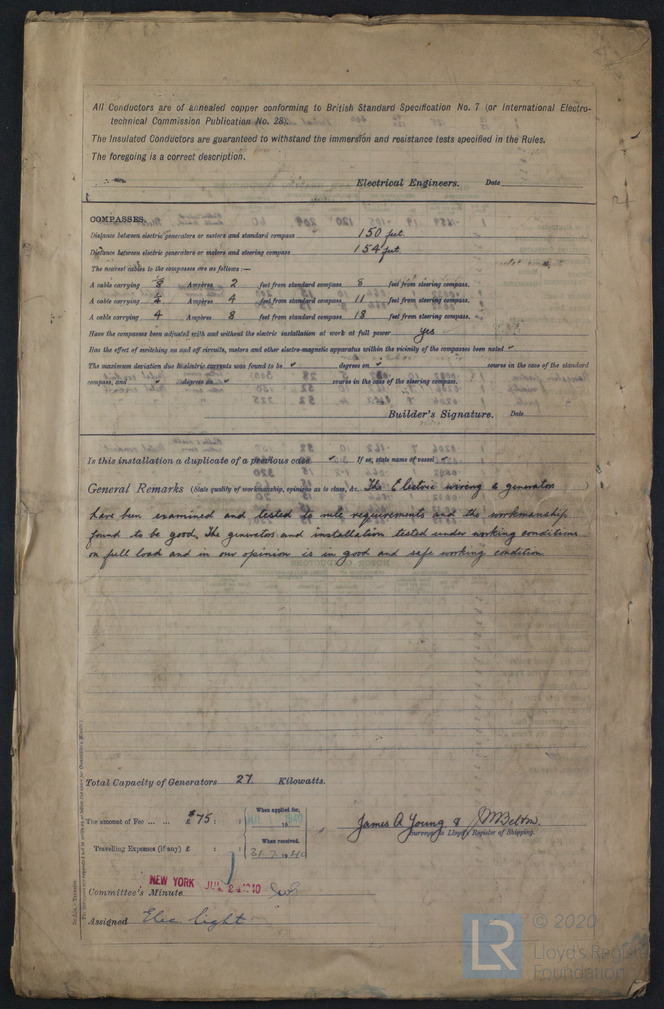 All Conductors are of annealed copper conforming to British Standard Specification No. 7 (or International Electro-
technical Commission Publication No. 28).
The Insulated Conductors are guaranteed to withstand the immersion and resistance tests specified in the Rules.
The foregoing is a correct description.
Electrical Engineers. Date
COMPASSES.
Distance between electric generators or motors and standard compass 150 feet
Distance between electric generators or motors and steering compass 154 feet
The nearest cables to the compasses are as follows:—
A cable carrying Ampères 2 feet from standard compass 8 feet from steering compass.
A cable carrying 4 Ampères 4 feet from standard compass 11 feet from steering compass.
A cable carrying 4 Ampères 8 feet from standard compass 18 feet from steering compass.
Have the compasses been adjusted with and without the electric installation at work at full power yes
Has the effect of switching on and off circuits, motors and other electro-magnetic apparatus within the vicinity of the compasses been noted
The maximum deviation due to electric currents was found to be degrees on course in the case of the standard
compass, and degrees on course in the case of the steering compass.
Builder's Signature. Date
Is this installation a duplicate of a previous case If so, state name of vessel
General Remarks (State quality of workmanship, opinions as to class, &c. The Electric wiring & generators )
have been examined and tested to rule requirements and the workmanship
found to be good. The generators and installation tested under working conditions
on full load and in our opinion is in good and safe working condition
Total Capacity of Generators 27 Kilowatts.
The amount of Fee ... ... $75 : :
When applied for,
19
Travelling Expenses (if any) £ : :
When received.
31.7.1940
James A Young &
Surveyors to Lloyd's Register of Shipping.
NEW YORK JUL 24 1940
Committee's Minute
Assigned Elec. light
© 2020
LR
Lloyd's Register
Foundation